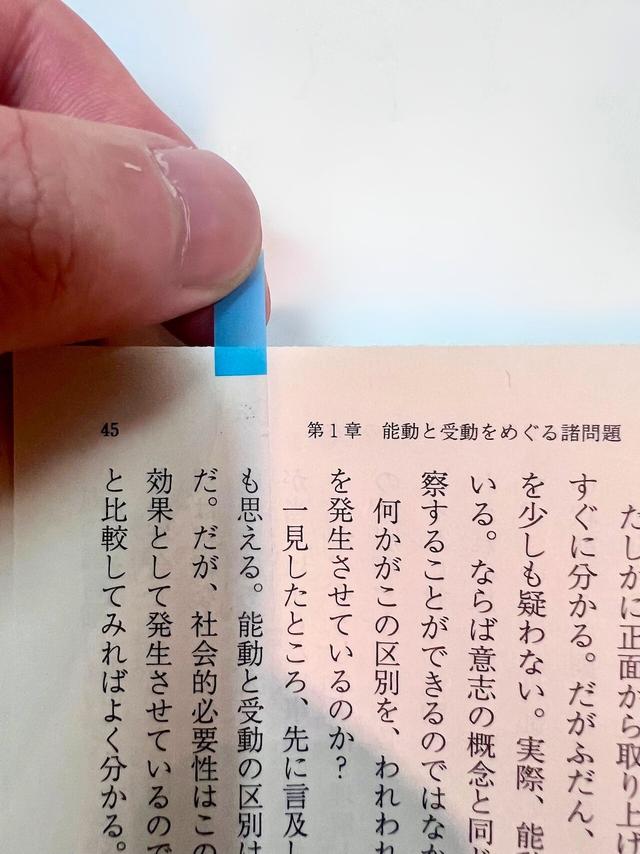 45
第1章 能動と受動をめぐる諸問題
たしかに正面から取り上げ
すぐに分かる。だがふだん、
を少しも疑わない。実際、能
いる。ならば意志の概念と同じ
察することができるのではなか
何かがこの区別を、われわれ
を発生させているのか?
一見したところ、先に言及し
も思える。能動と受動の区別は
だ。だが、社会的必要性はこの
効果として発生させているので
と比較してみればよく分かる。